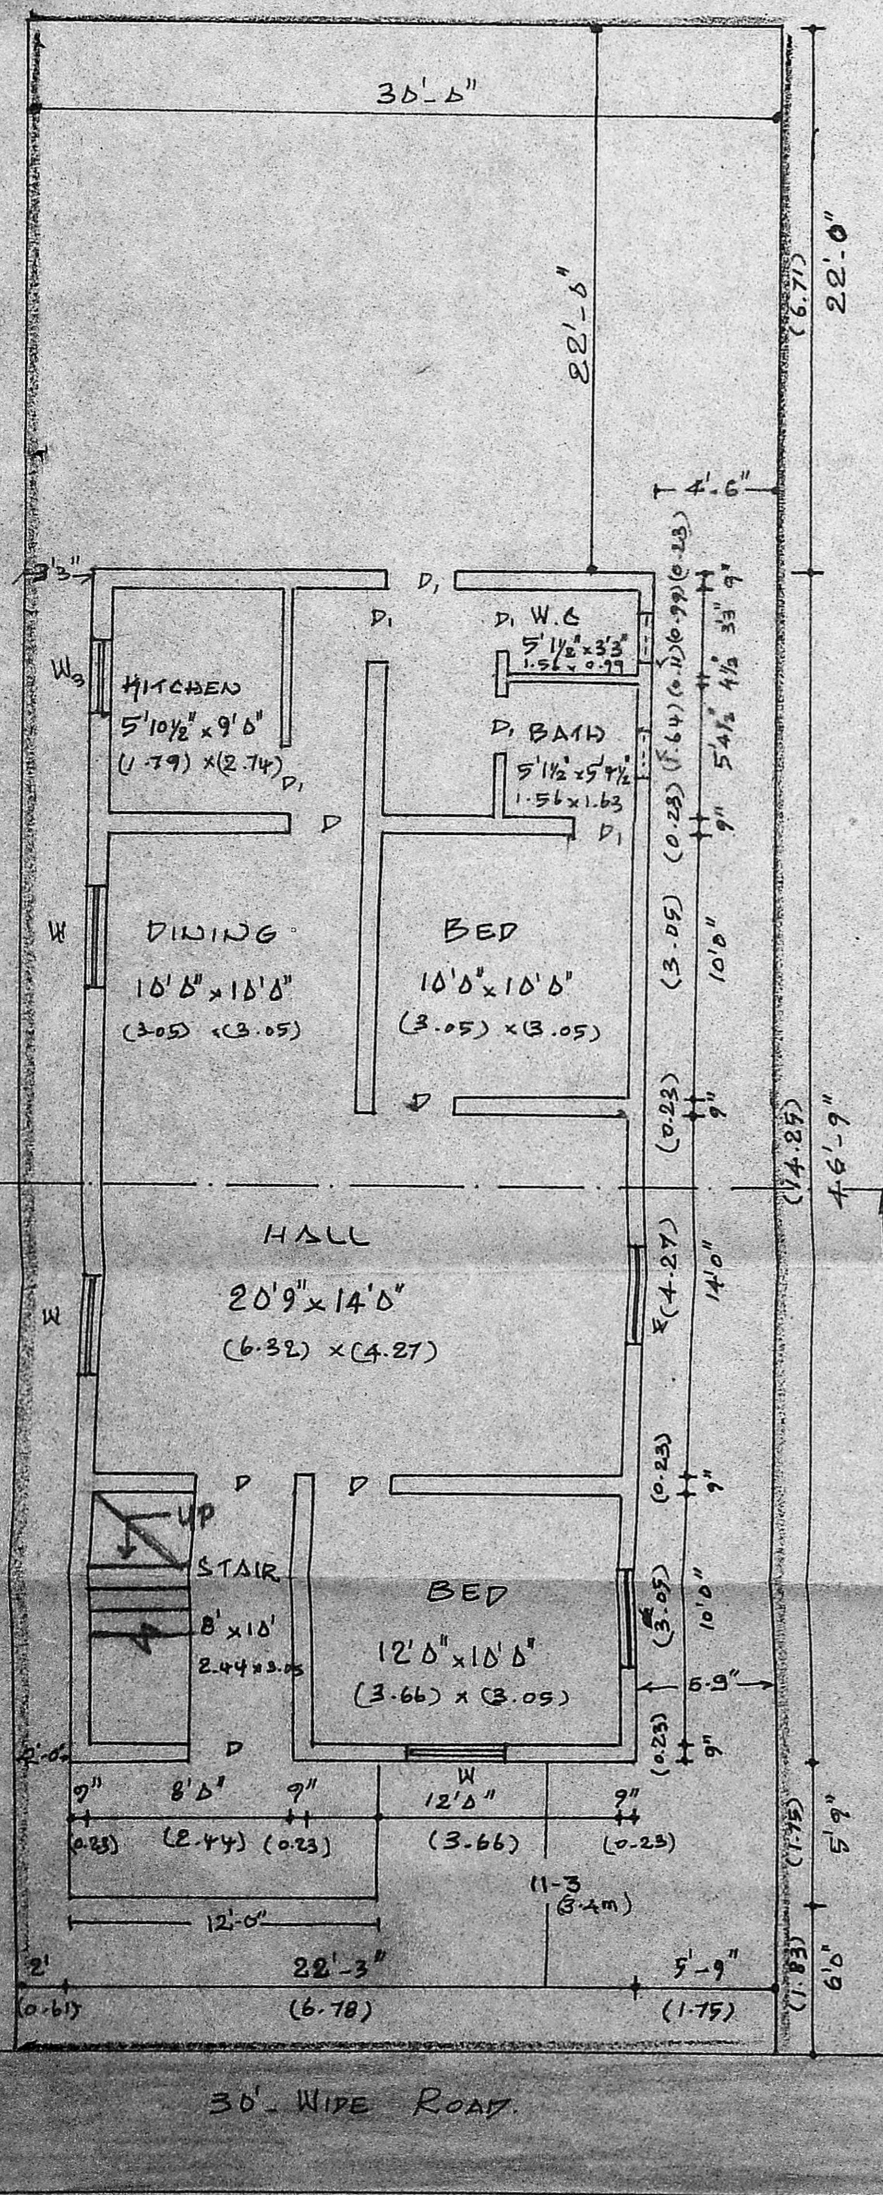 30'-0"
22'-0"
(6.71)
22'-0"
4'-6"
3'3"
D1
(0.23)
9"
D1
D1 W.C
5'1½" x 3'3"
1.56 x 0.99
(0.99)
3'3"
W3
KITCHEN
5'10½" x 9'0"
(1.79) x (2.74)
D1
(0.11)
4½"
D1 BATH
5'1½" x 5'4½"
1.56 x 1.63
(1.64)
5'4½"
D
D1
(0.23)
9"
W
DINING
10'0" x 10'0"
(3.05) x (3.05)
BED
10'0" x 10'0"
(3.05) x (3.05)
(3.05)
10'0"
D
(0.23)
9"
(14.25)
46'-9"
HALL
20'9" x 14'0"
(6.32) x (4.27)
W
(4.27)
14'0"
D
D
(0.23)
9"
UP
STAIR
8' x 10'
2.44 x 3.05
BED
12'0" x 10'0"
(3.66) x (3.05)
(3.05)
10'0"
5-9"
2'-0"
D
W
(0.23)
9"
9" 8'0" 9" 12'0" 9"
(0.23) (2.44) (0.23) (3.66) (0.23)
(1.75)
5'9"
11-3
(3.4m)
12'-0"
2' 22'-3" 5'-9"
(0.61) (6.78) (1.75)
(1.83)
6'0"
30'- WIDE ROAD.